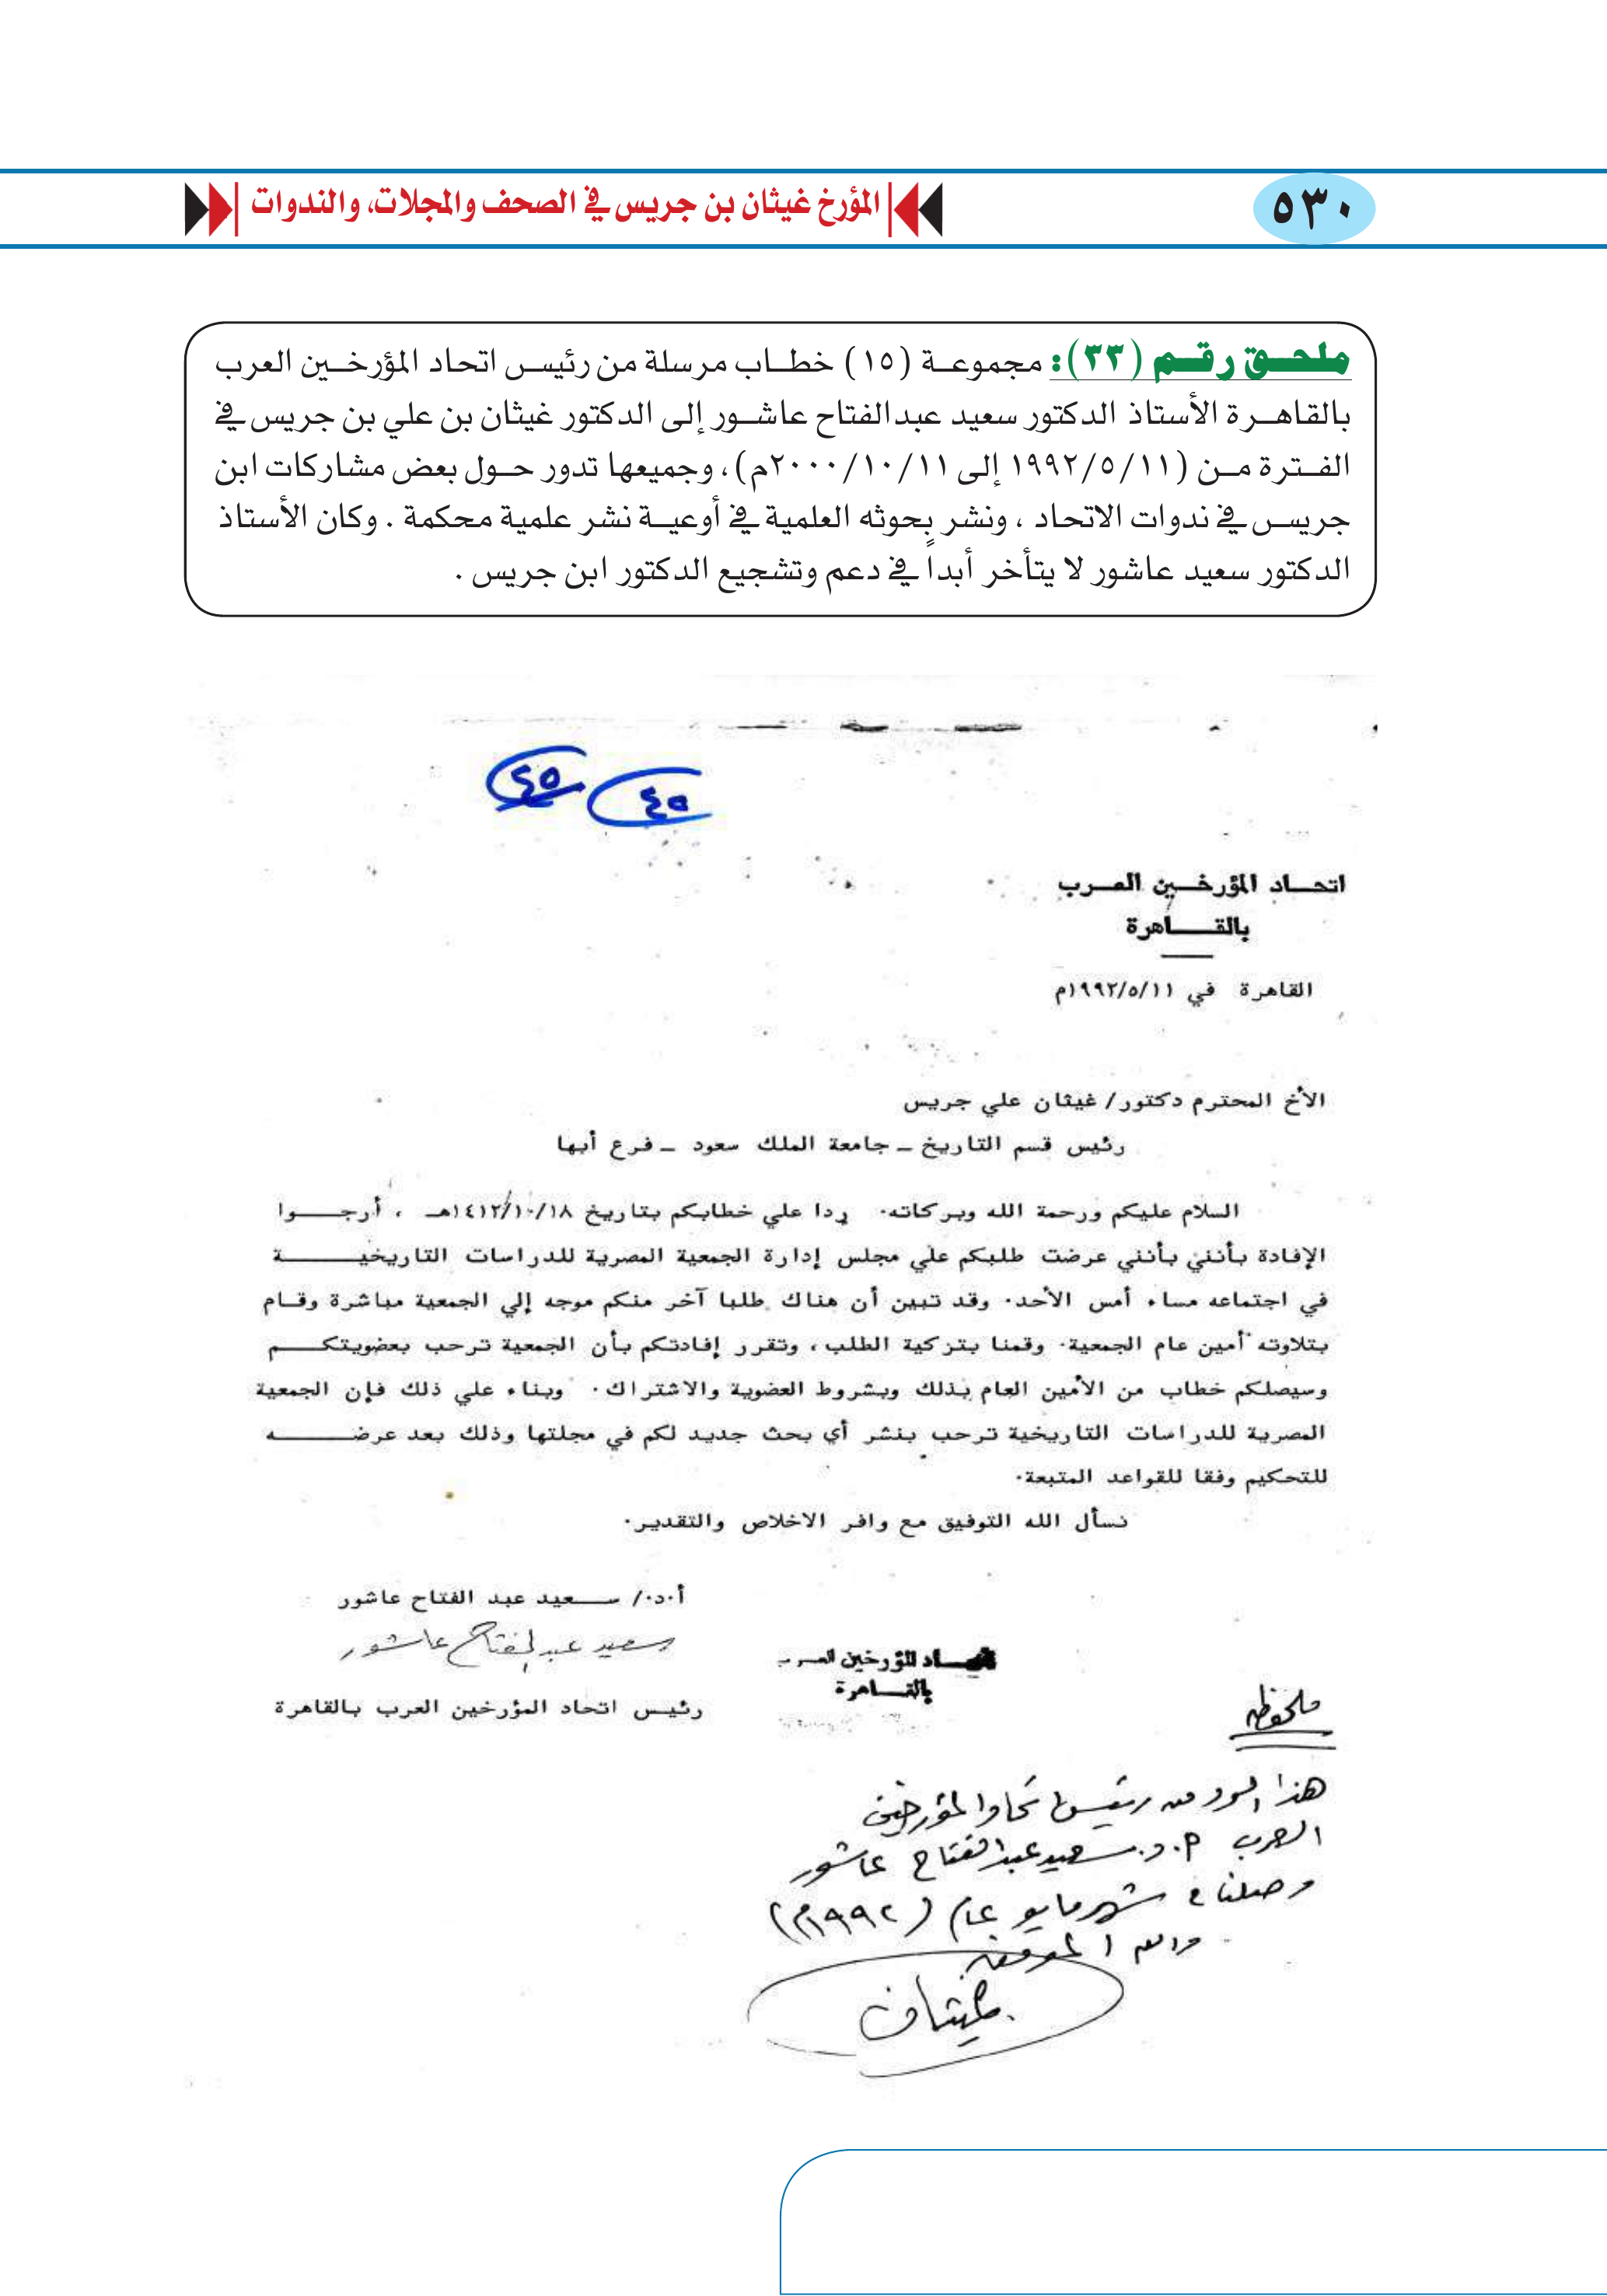 ٥٣٠
المؤرخ غيثان بن جريس في الصحف والمجلات، والندوات
ملحق رقم (٣٣): مجموعة (١٥) خطاب مرسلة من رئيس اتحاد المؤرخين العرب
بالقاهرة الأستاذ الدكتور سعيد عبدالفتاح عاشور إلى الدكتور غيثان بن علي بن جريس في
الفترة من (١٩٩٢/٥/١١ إلى ٢٠٠٠/١٠/١١م)، وجميعها تدور حول بعض مشاركات ابن
جريس في ندوات الاتحاد ، ونشر بحوثه العلمية في أوعية نشر علمية محكمة . وكان الأستاذ
الدكتور سعيد عاشور لا يتأخر أبداً في دعم وتشجيع الدكتور ابن جريس .
٤٥ ٤٥
اتحاد المؤرخين العرب
بالقاهرة
القاهرة في ١٩٩٢/٥/١١م
الأخ المحترم دكتور/ غيثان علي جريس
رئيس قسم التاريخ - جامعة الملك سعود - فرع أبها
السلام عليكم ورحمة الله وبركاته. ردا علي خطابكم بتاريخ ١٤١٢/١٠/١٨هـ ، أرجوا
الإفادة بأنني بأنني عرضت طلبكم علي مجلس إدارة الجمعية المصرية للدراسات التاريخية
في اجتماعه مساء أمس الأحد. وقد تبين أن هناك طلبا آخر منكم موجه إلي الجمعية مباشرة وقام
بتلاوته أمين عام الجمعية. وقمنا بتزكية الطلب ، وتقرر إفادتكم بأن الجمعية ترحب بعضويتكم
وسيصلكم خطاب من الأمين العام بذلك وبشروط العضوية والاشتراك. وبناء علي ذلك فإن الجمعية
المصرية للدراسات التاريخية ترحب بنشر أي بحث جديد لكم في مجلتها وذلك بعد عرضه
للتحكيم وفقا للقواعد المتبعة.
نسأل الله التوفيق مع وافر الاخلاص والتقدير.
أ.د./ سعيد عبد الفتاح عاشور
سعيد عبدالفتاح عاشور
اتحاد المؤرخين العرب
بالقاهرة
رئيس اتحاد المؤرخين العرب بالقاهرة
ملحوظة
هذا الرد من رئيس اتحاد المؤرخين
العرب أ.د. سعيد عبدالفتاح عاشور
وصلنا في شهر مايو عام (١٩٩٢م)
والله الموفق
غيثان